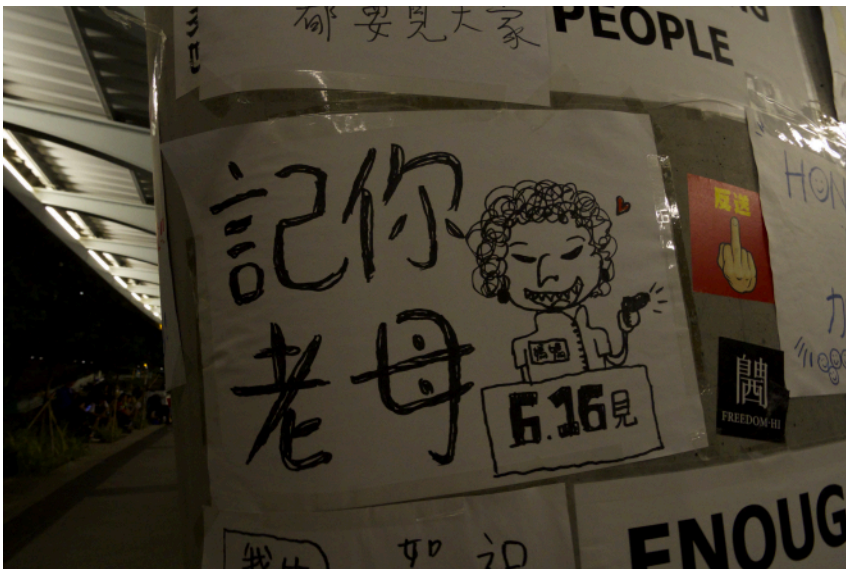 都要見大家
PEOPLE
記你
老母
6.16見
反送
HON
FREEDOM-HI
力
ENOUG
如